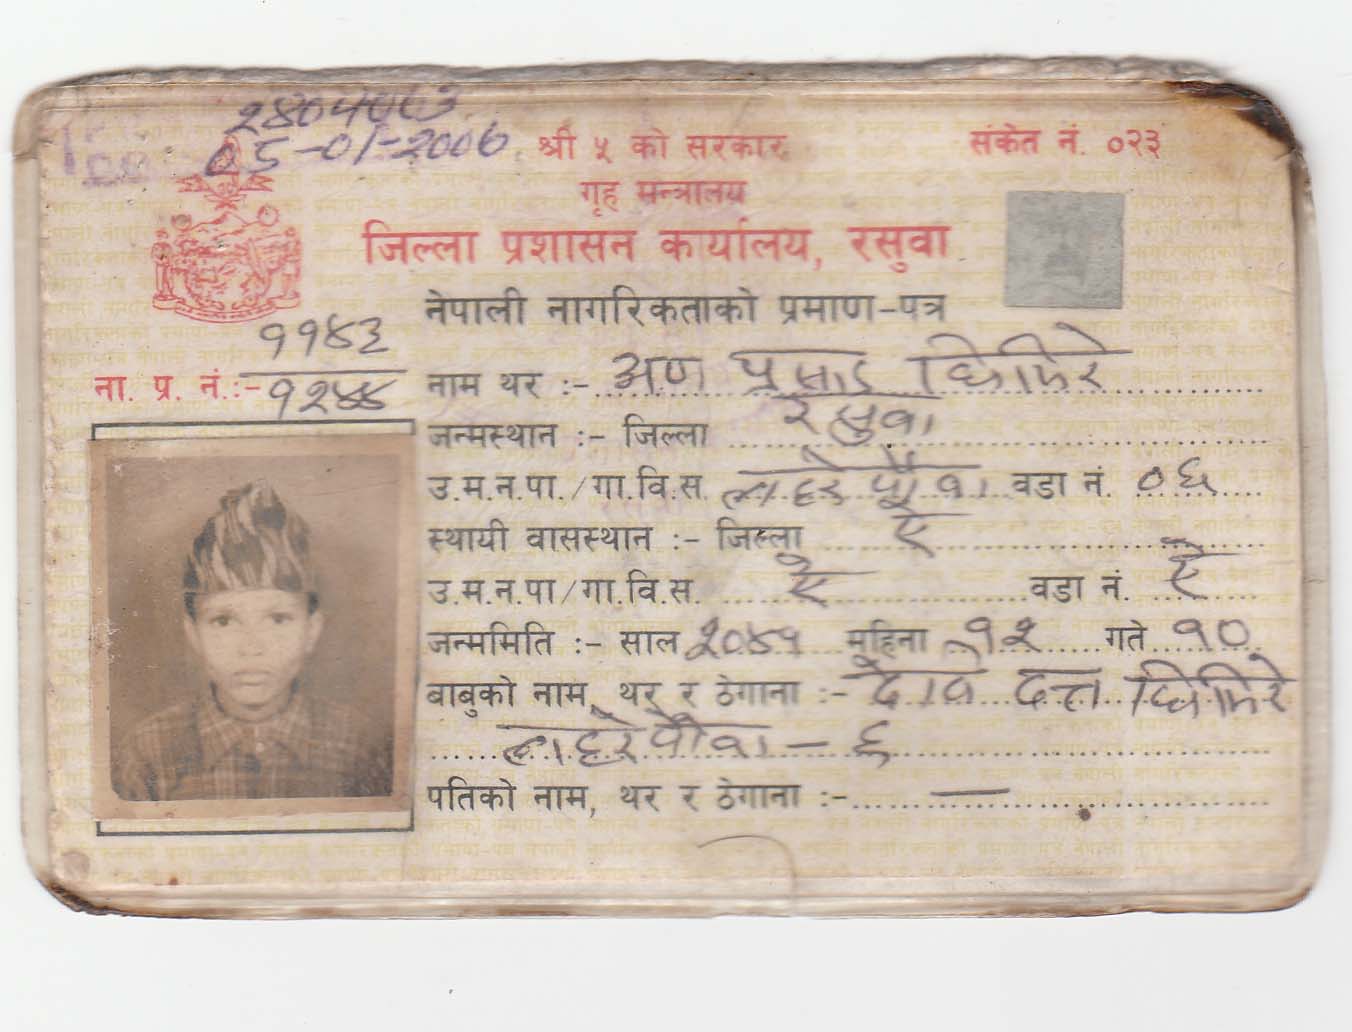 05-01-2006
श्री ५ को सरकार
संकेत नं. ०२३
गृह मन्त्रालय
जिल्ला प्रशासन कार्यालय, रसुवा
नेपाली नागरिकताको प्रमाण-पत्र
ना. प्र. नं.:- ११४३
१२४४
नाम थर :- प्रसाद घिमिरे
जन्मस्थान :- जिल्ला रसुवा
उ.म.न.पा./गा.वि.स. लाहरेपौवा वडा नं. ०६
स्थायी वासस्थान :- जिल्ला ऐ
उ.म.न.पा/गा.वि.स. ऐ वडा नं. ऐ
जन्ममिति :- साल २०४१ महिना १२ गते १०
बाबुको नाम, थर र ठेगाना :- दत्त घिमिरे
लाहरेपौवा - ६
पतिको नाम, थर र ठेगाना :- —